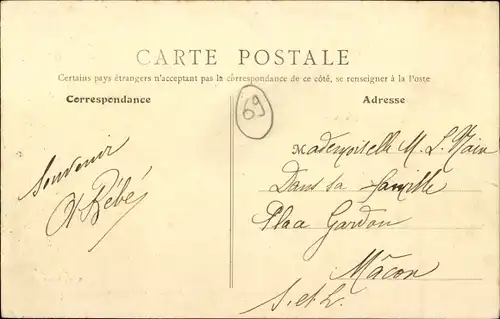 CARTE POSTALE
Certains pays étrangers n'acceptant pas la correspondance de ce côté, se renseigner à la Poste
Correspondance
Adresse
69
Souvenir
Bébé
Mademoiselle M. L.
Dans sa famille
Place Gardon
Mâcon
S. et L.